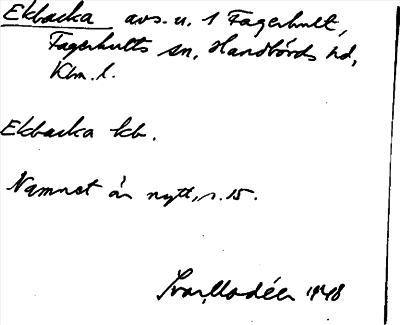 Ekbacka avs. u. 1 Fagerhult,
Fagerhults sn, Handbörds hd,
Klm. l.
Ekbacka kb.
Namnet är nytt, s. 15.
Ivar Modéer 1948